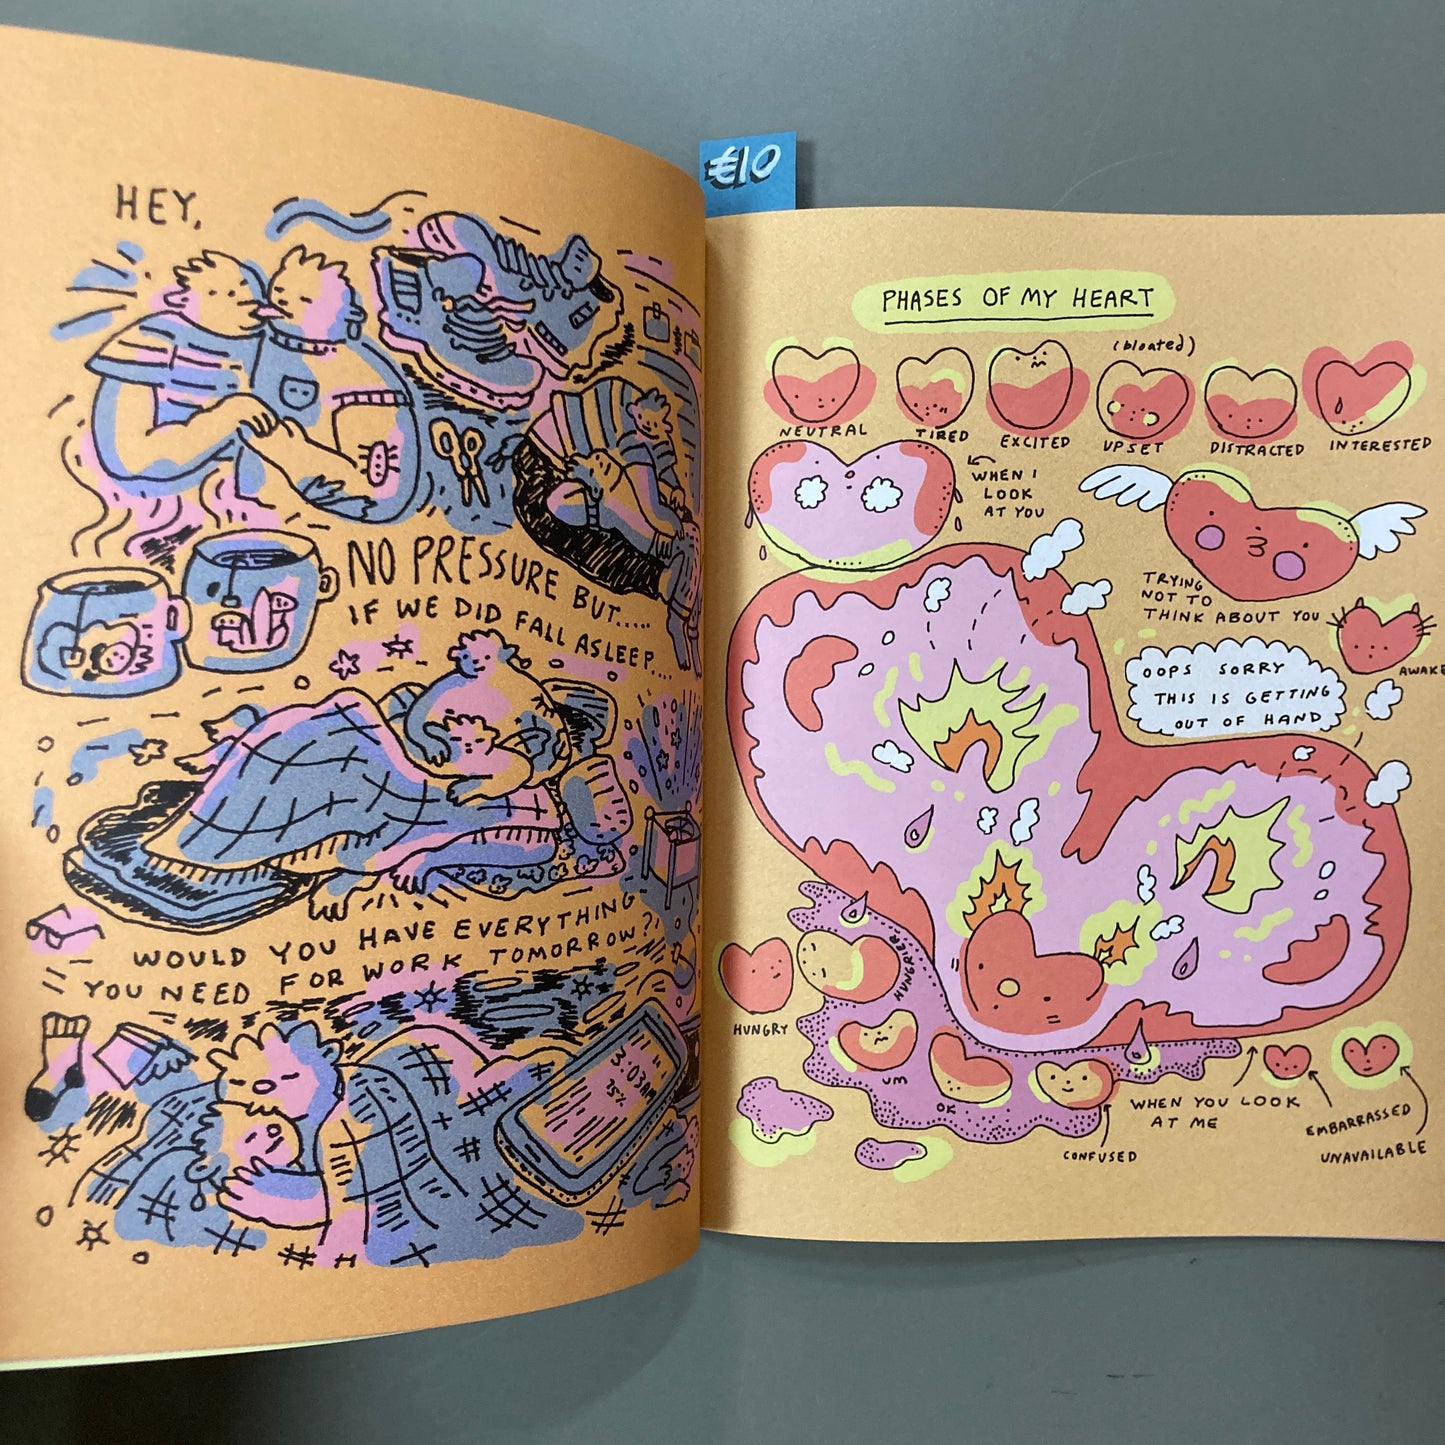 €10
HEY,
NO PRESSURE BUT.....
IF WE DID FALL ASLEEP....
WOULD YOU HAVE EVERYTHING
YOU NEED FOR WORK TOMORROW?
3:03AM
25%
PHASES OF MY HEART
NEUTRAL
TIRED
EXCITED
(bloated)
UPSET
DISTRACTED
INTERESTED
WHEN I
LOOK
AT YOU
TRYING
NOT TO
THINK ABOUT YOU
AWAKE
OOPS SORRY
THIS IS GETTING
OUT OF HAND
HUNGRY
HUNGRIER
UM
OK
CONFUSED
WHEN YOU LOOK
AT ME
EMBARRASSED
UNAVAILABLE